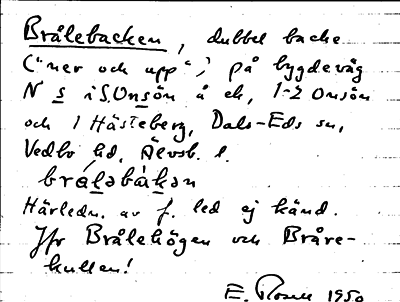 Brålebacken, dubbel backe
("ner och upp",) på bygdeväg
N s i S.Onsön å ek, 1-2 Onsön
och 1 Hästeberg, Dals-Eds sn,
Vedbo hd, Älvsb. l.
brǻlәbàkәn
Härledn. av f. led ej känd.
Jfr Brålehögen och Bråre-
kullen!
E. Rosell 1950